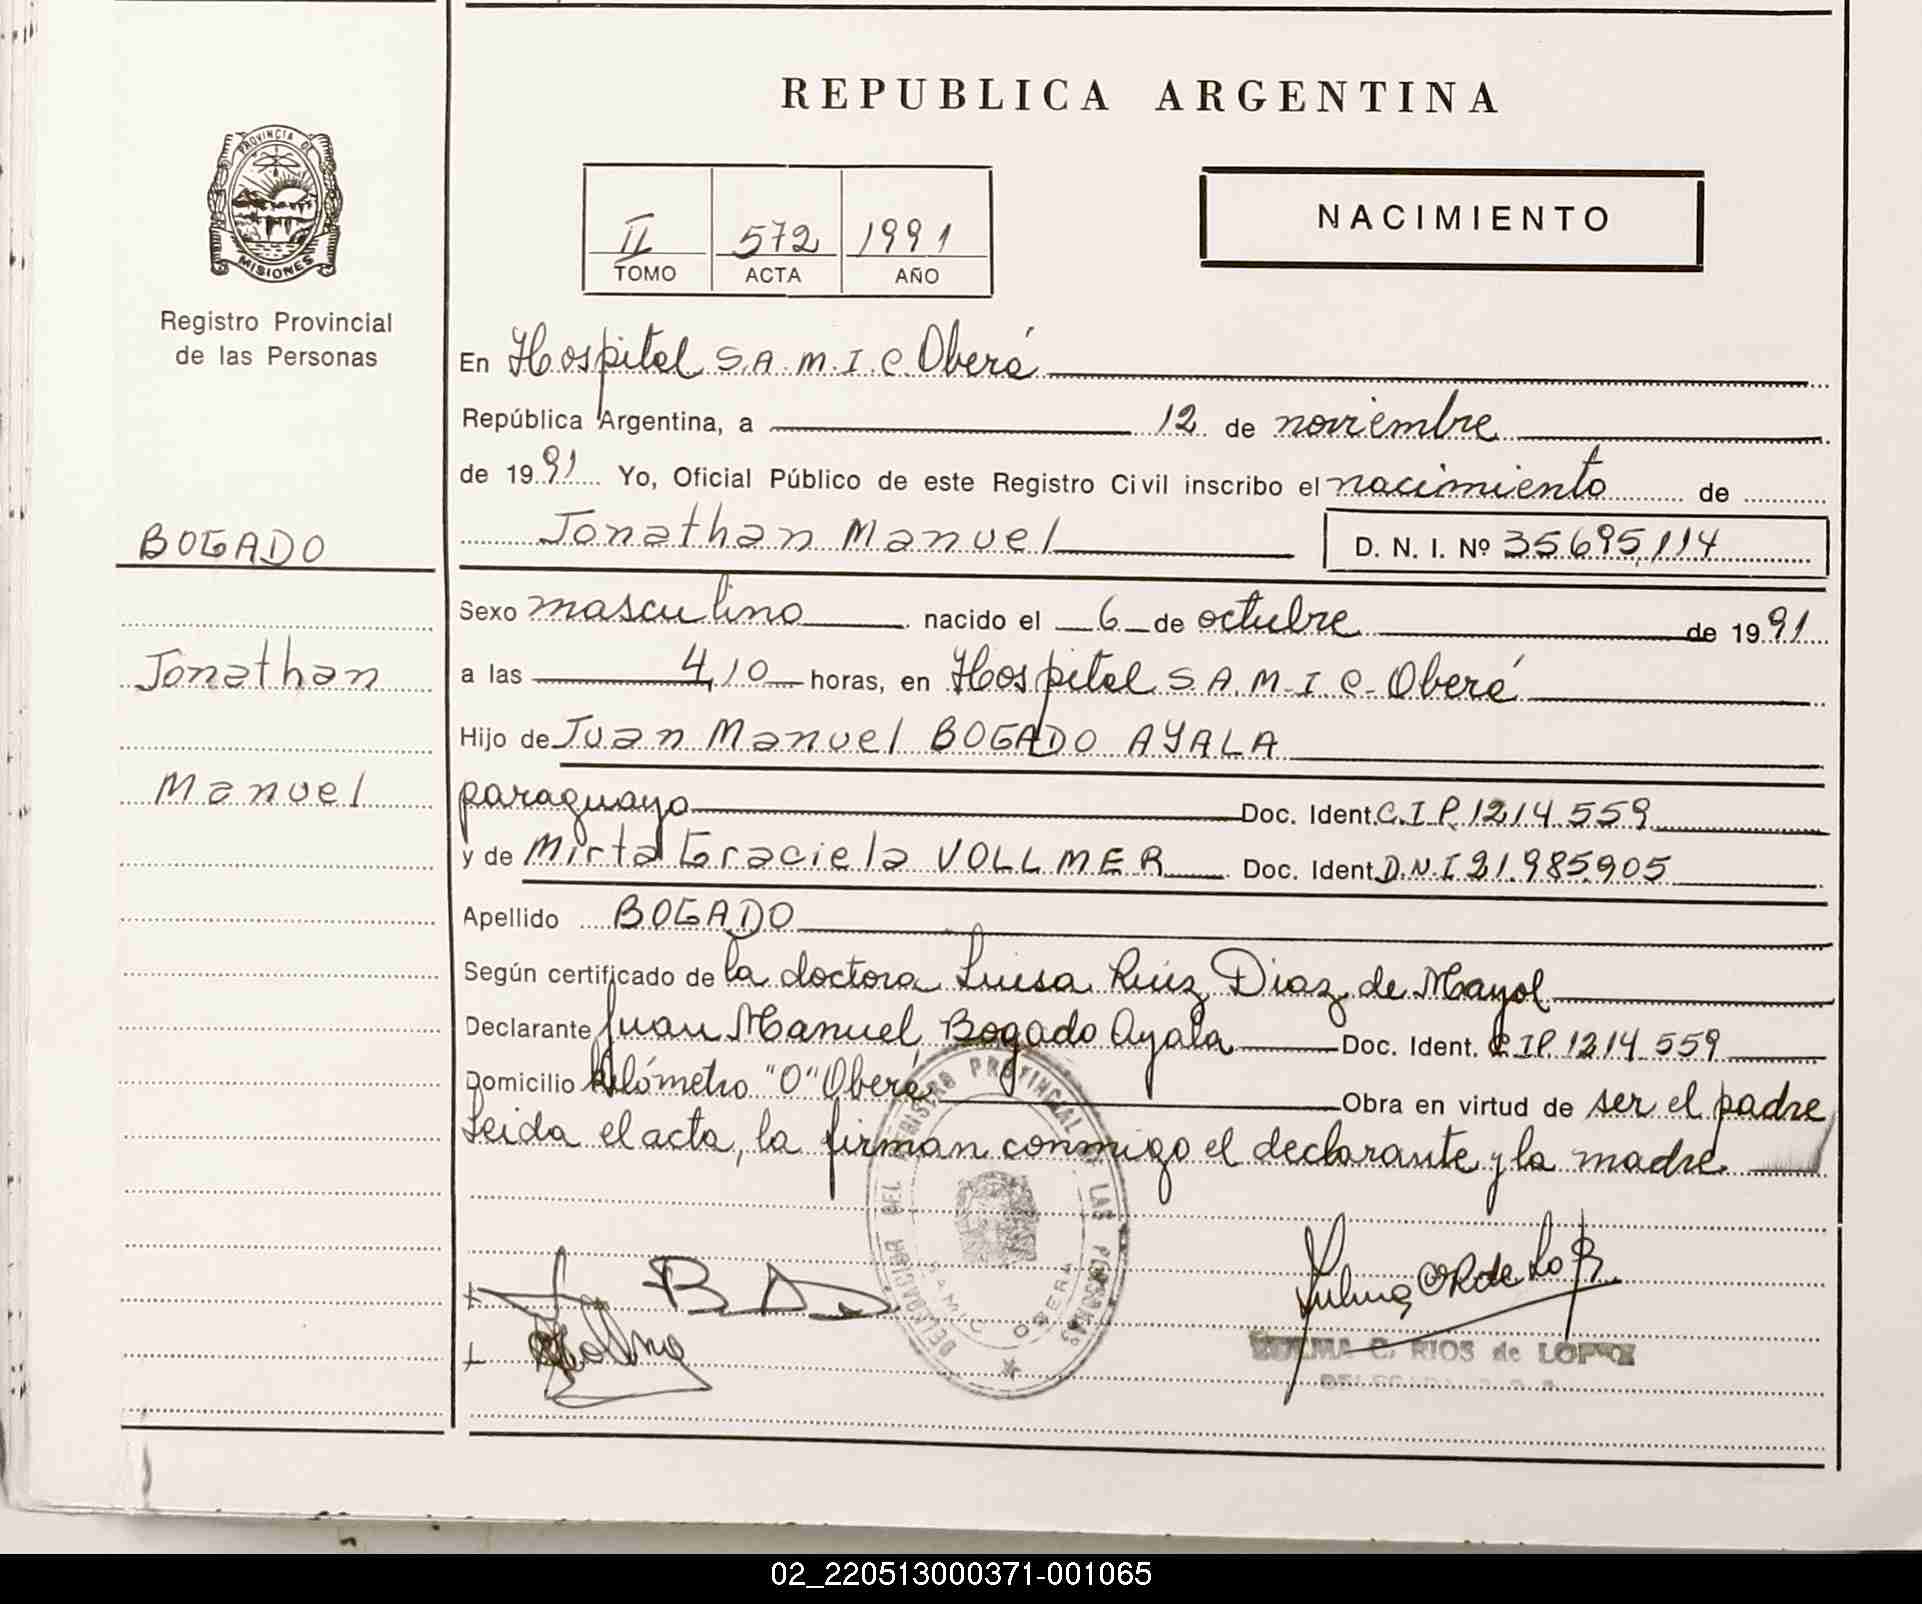 REPUBLICA ARGENTINA
PROVINCIA DE
MISIONES
Registro Provincial
de las Personas
II 572 1991
TOMO ACTA AÑO
NACIMIENTO
En Hospital S.A.M.I.C. Oberá
República Argentina, a 12 de noviembre
de 1991 Yo, Oficial Público de este Registro Civil inscribo el nacimiento de
BOGADO
Jonathan Manuel D. N. I. Nº 35695,114
Sexo masculino nacido el 6 de octubre de 1991
Jonathan
a las 4,10 horas, en Hospital S.A.M.I.C. Oberá
Hijo de Juan Manuel BOGADO AYALA
Manuel
paraguayo Doc. Ident. C.I.P. 1214.559
y de Mirta Graciela VOLLMER Doc. Ident. D.N.I 21.985.905
Apellido BOGADO
Según certificado de la doctora Luisa Ruíz Diaz de Mayol
Declarante Juan Manuel Bogado Ayala Doc. Ident. C.I.P. 1214.559
Domicilio kilómetro "0" Oberá Obra en virtud de ser el padre
Leida el acta, la firman conmigo el declarante y la madre.
DELEGACION DEL REGISTRO PROVINCIAL DE LAS PERSONAS
SAMIC OBERA
ZULMA C. RIOS de LOPEZ
02_220513000371-001065